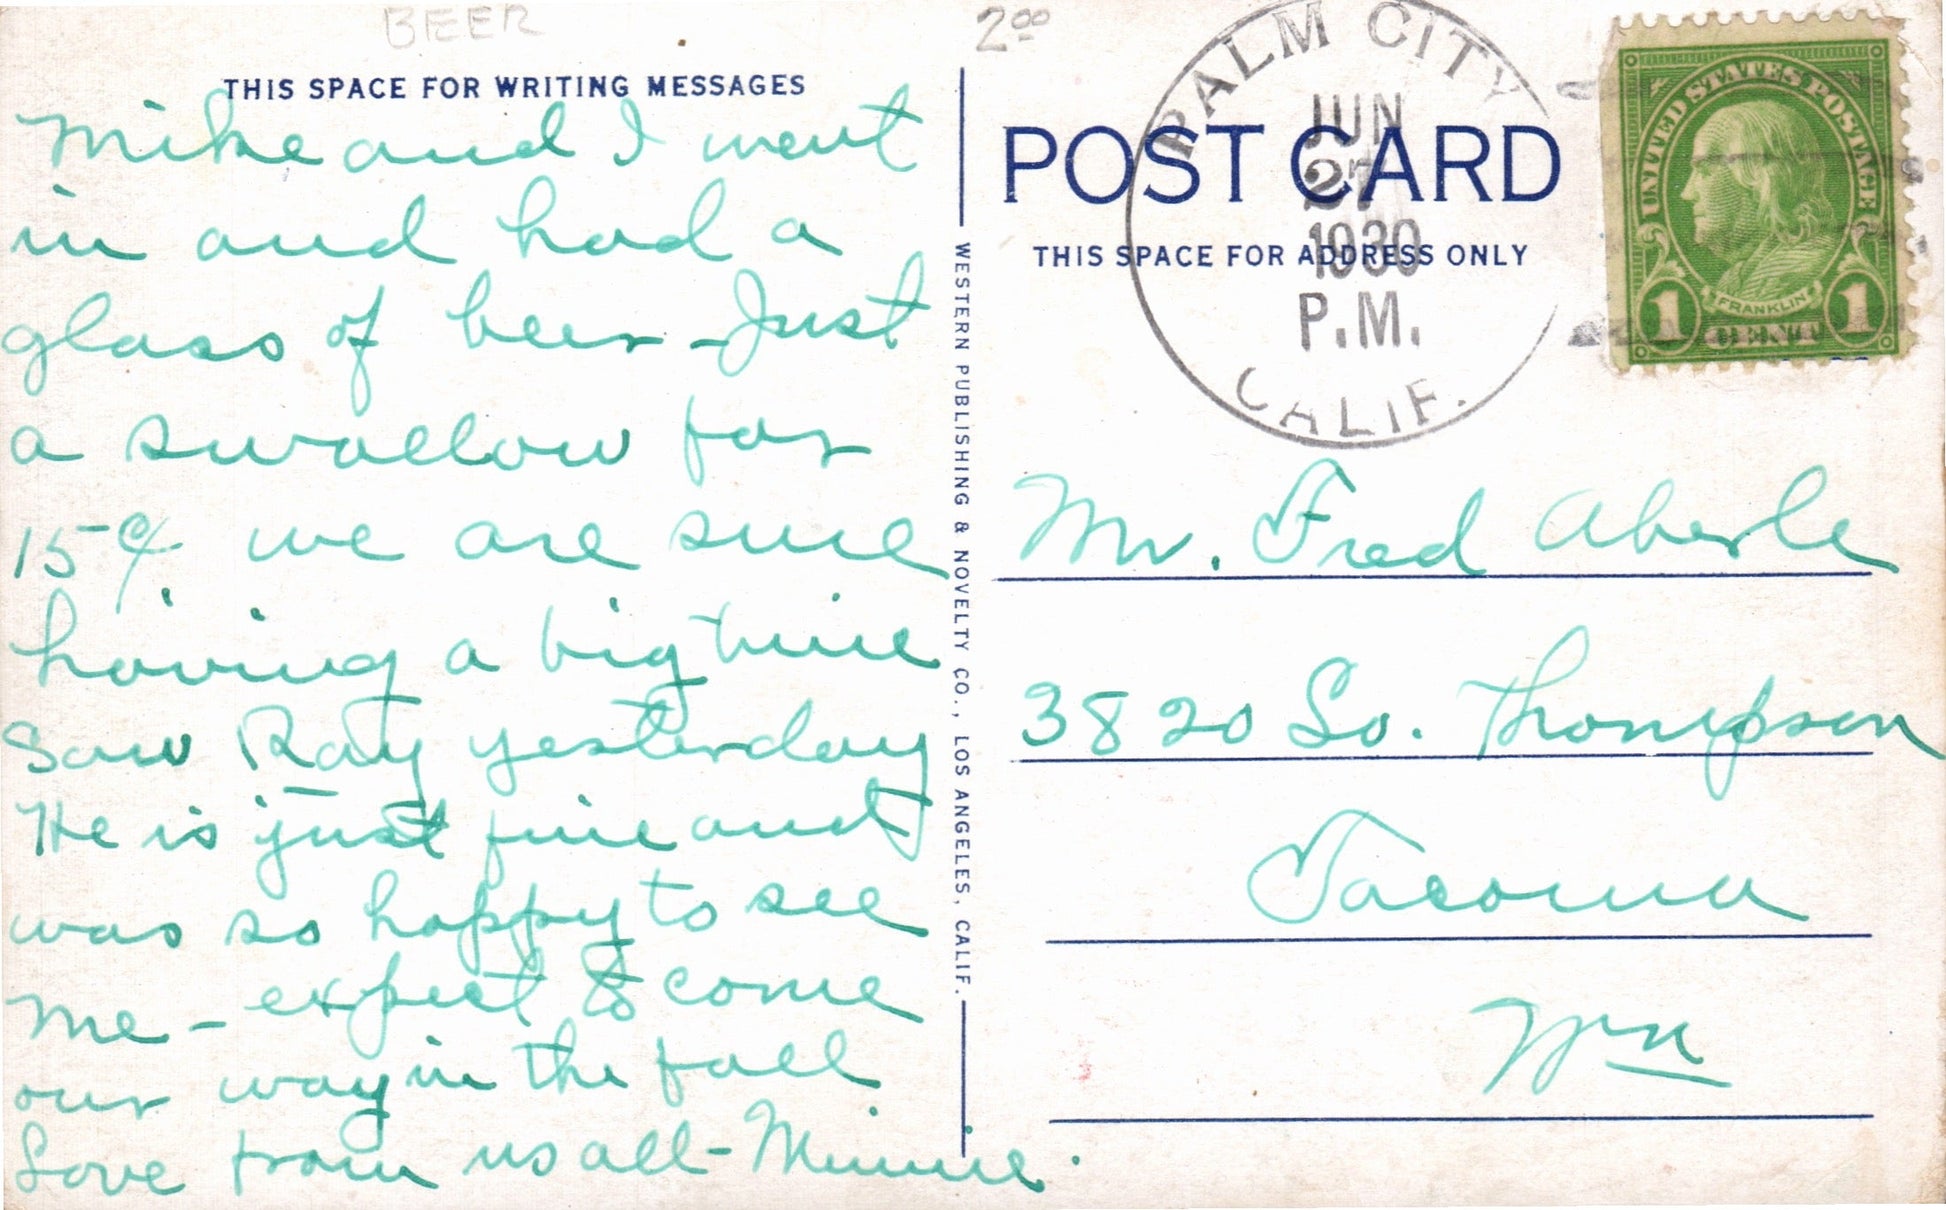 BEER
2 00
THIS SPACE FOR WRITING MESSAGES
Mike and I went
in and had a
glass of beer - Just
a swallow for
15¢. we are sure
having a big time
Saw Ray yesterday
He is just fine and
was so happy to see
me - expect to come
our way in the fall
Love from us all - Minnie.
WESTERN PUBLISHING & NOVELTY CO., LOS ANGELES, CALIF.
POST CARD
THIS SPACE FOR ADDRESS ONLY
PALM CITY
JUN
27
1930
P.M.
CALIF.
UNITED STATES POSTAGE
FRANKLIN
1 CENT 1
Mr. Fred Aberle
3820 So. Thompson
Tacoma
Wn